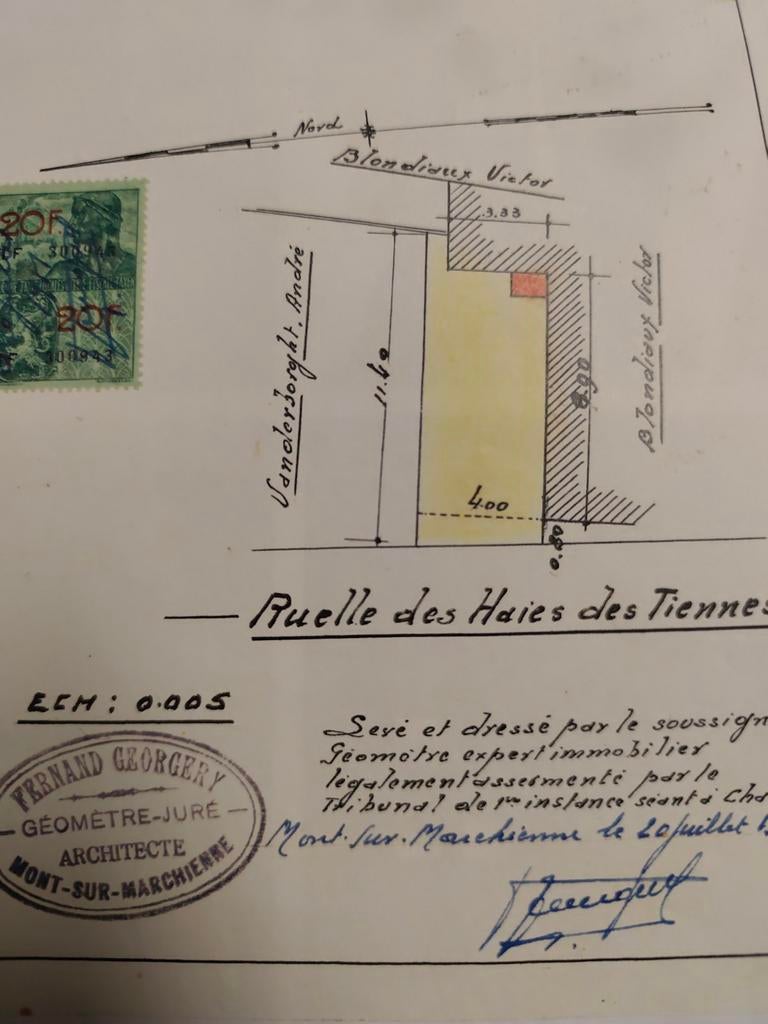 Nord
Blondiaux Victor
20F.
300943
20F
300943
3.33
Vandersorght. André
11.40
8.90
Blondiaux Victor
4.00
0.80
Ruelle des Haies des Tiennes
ECH: 0.005
Levé et dressé par le soussign
Géomètre expert immobilier
légalement assermenté par le
Tribunal de 1re instance séant à Cha
Mont-sur-Marchienne le 20 juillet
FERNAND GEORGERY
GÉOMÈTRE-JURÉ
ARCHITECTE
MONT-SUR-MARCHIENNE